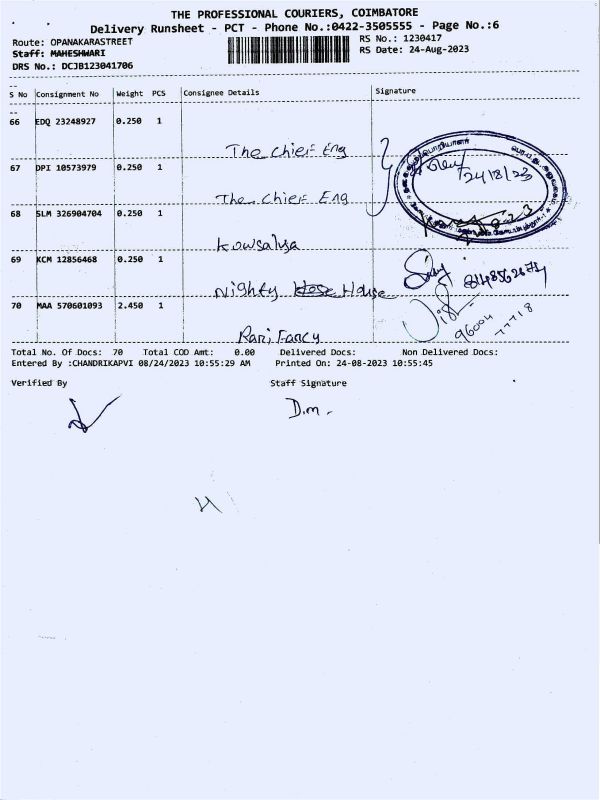 THE PROFESSIONAL COURIERS, COIMBATORE
Delivery Runsheet - PCT - Phone No.:0422-3505555 - Page No.:6
Route: OPANAKARASTREET
RS No.: 1230417
Staff: MAHESHWARI
RS Date: 24-Aug-2023
DRS No.: DCJB123041706
S No Consignment No Weight PCS Consignee Details Signature
66 EDQ 23248927 0.250 1
The chief Eng
67 DPI 10573979 0.250 1
24/8/23
The chief Eng
68 SLM 326904704 0.250 1
Kowsalya
69 KCM 12856468 0.250 1
Nighty House
70 MAA 570601093 2.450 1
96004
77718
Rani Fancy
Total No. Of Docs: 70 Total COD Amt: 0.00 Delivered Docs: Non Delivered Docs:
Entered By :CHANDRIKAPVI 08/24/2023 10:55:29 AM Printed On: 24-08-2023 10:55:45
Verified By Staff Signature
D.m.